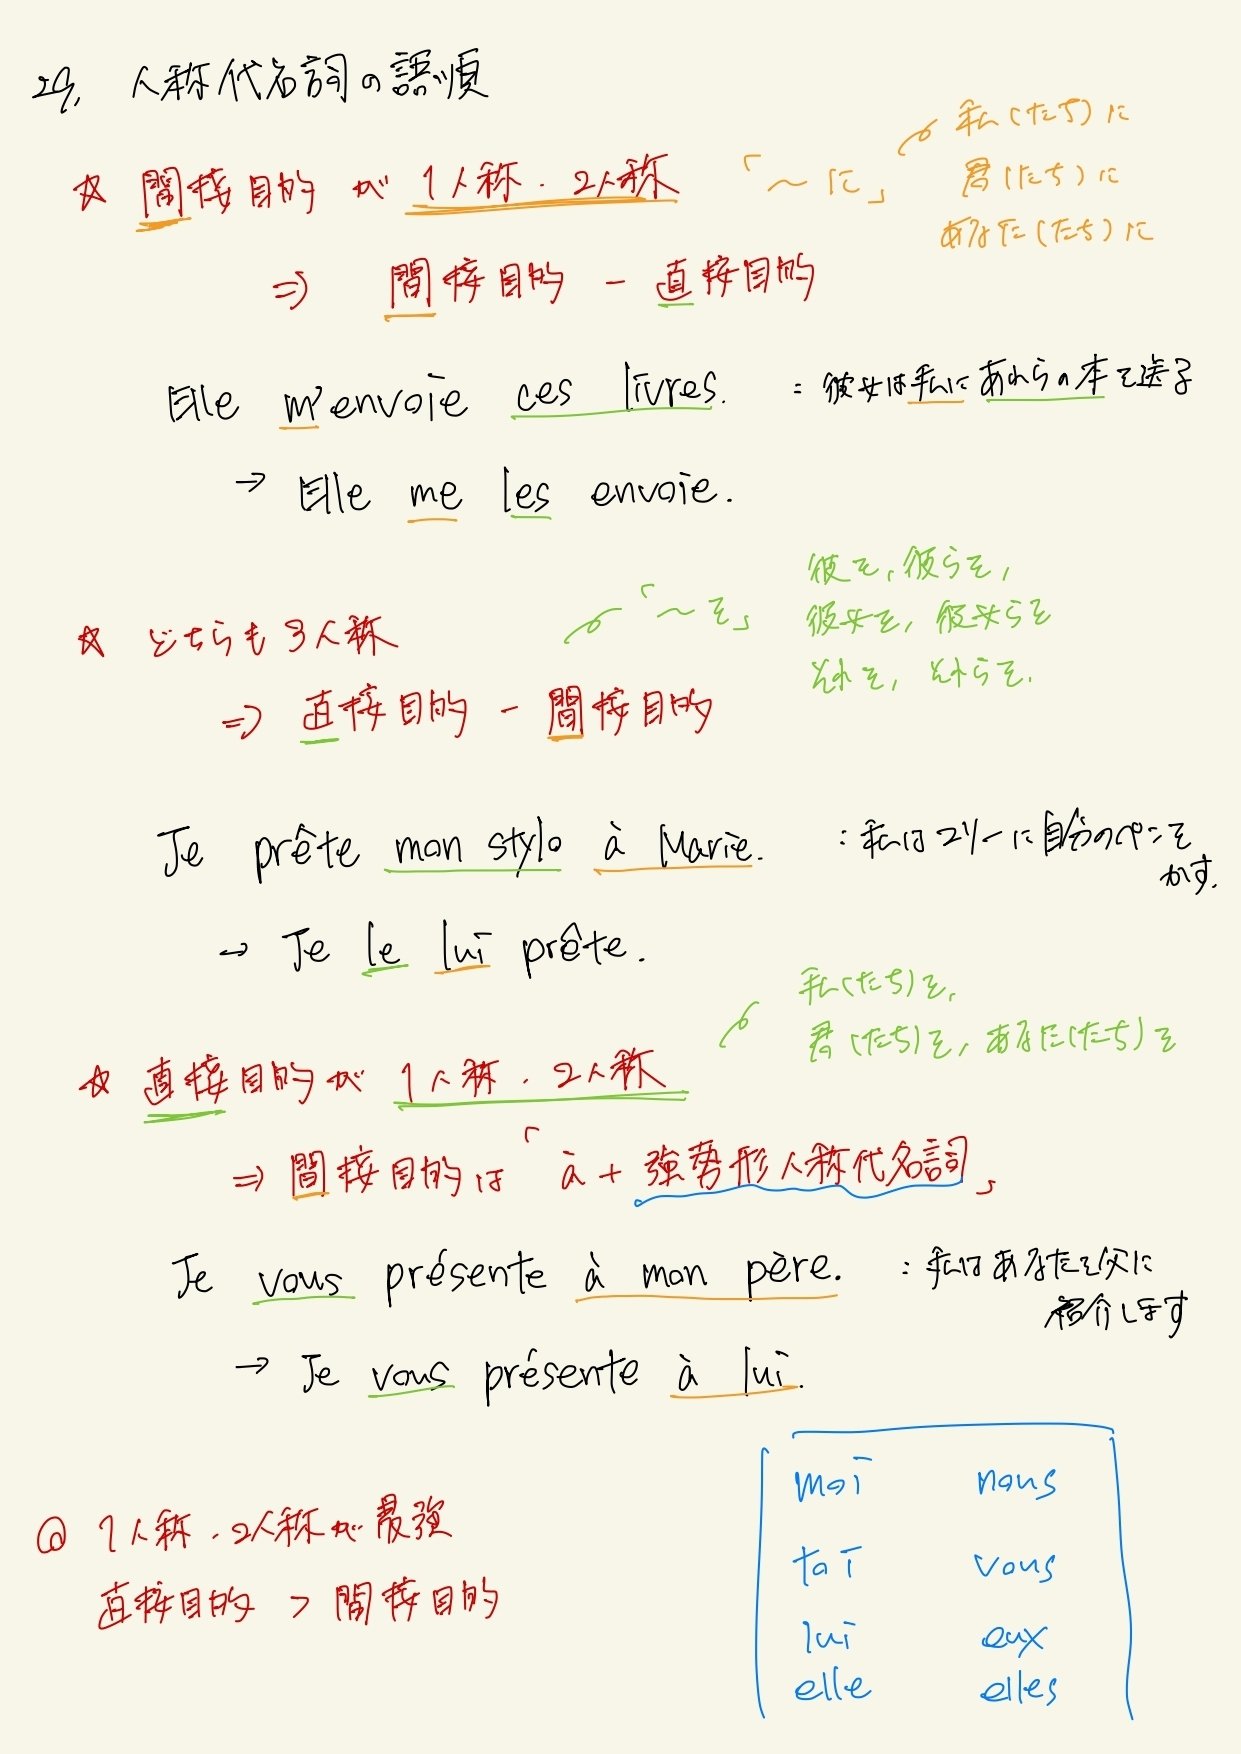 29. 人称代名詞の語順
☆ 間接目的 が 1人称・2人称 「〜に」
私(たち)に
君(たち)に
あなた(たち)に
⇒ 間接目的 − 直接目的
Elle m'envoie ces livres. = 彼女は私にあれらの本を送る
→ Elle me les envoie.
☆ どちらも3人称
「〜を」
彼を, 彼らを,
彼女を, 彼女らを
それを, それらを.
⇒ 直接目的 − 間接目的
Je prête mon stylo à Marie. : 私はマリーに自分のペンを
かす.
→ Je le lui prête.
私(たち)を,
君(たち)を, あなた(たち)を
☆ 直接目的が 1人称・2人称
⇒ 間接目的は「à + 強勢形人称代名詞」
Je vous présente à mon père. : 私はあなたを父に
紹介します
→ Je vous présente à lui.
moi nous
toi vous
lui eux
elle elles
◎ 1人称・2人称が最強
直接目的 > 間接目的